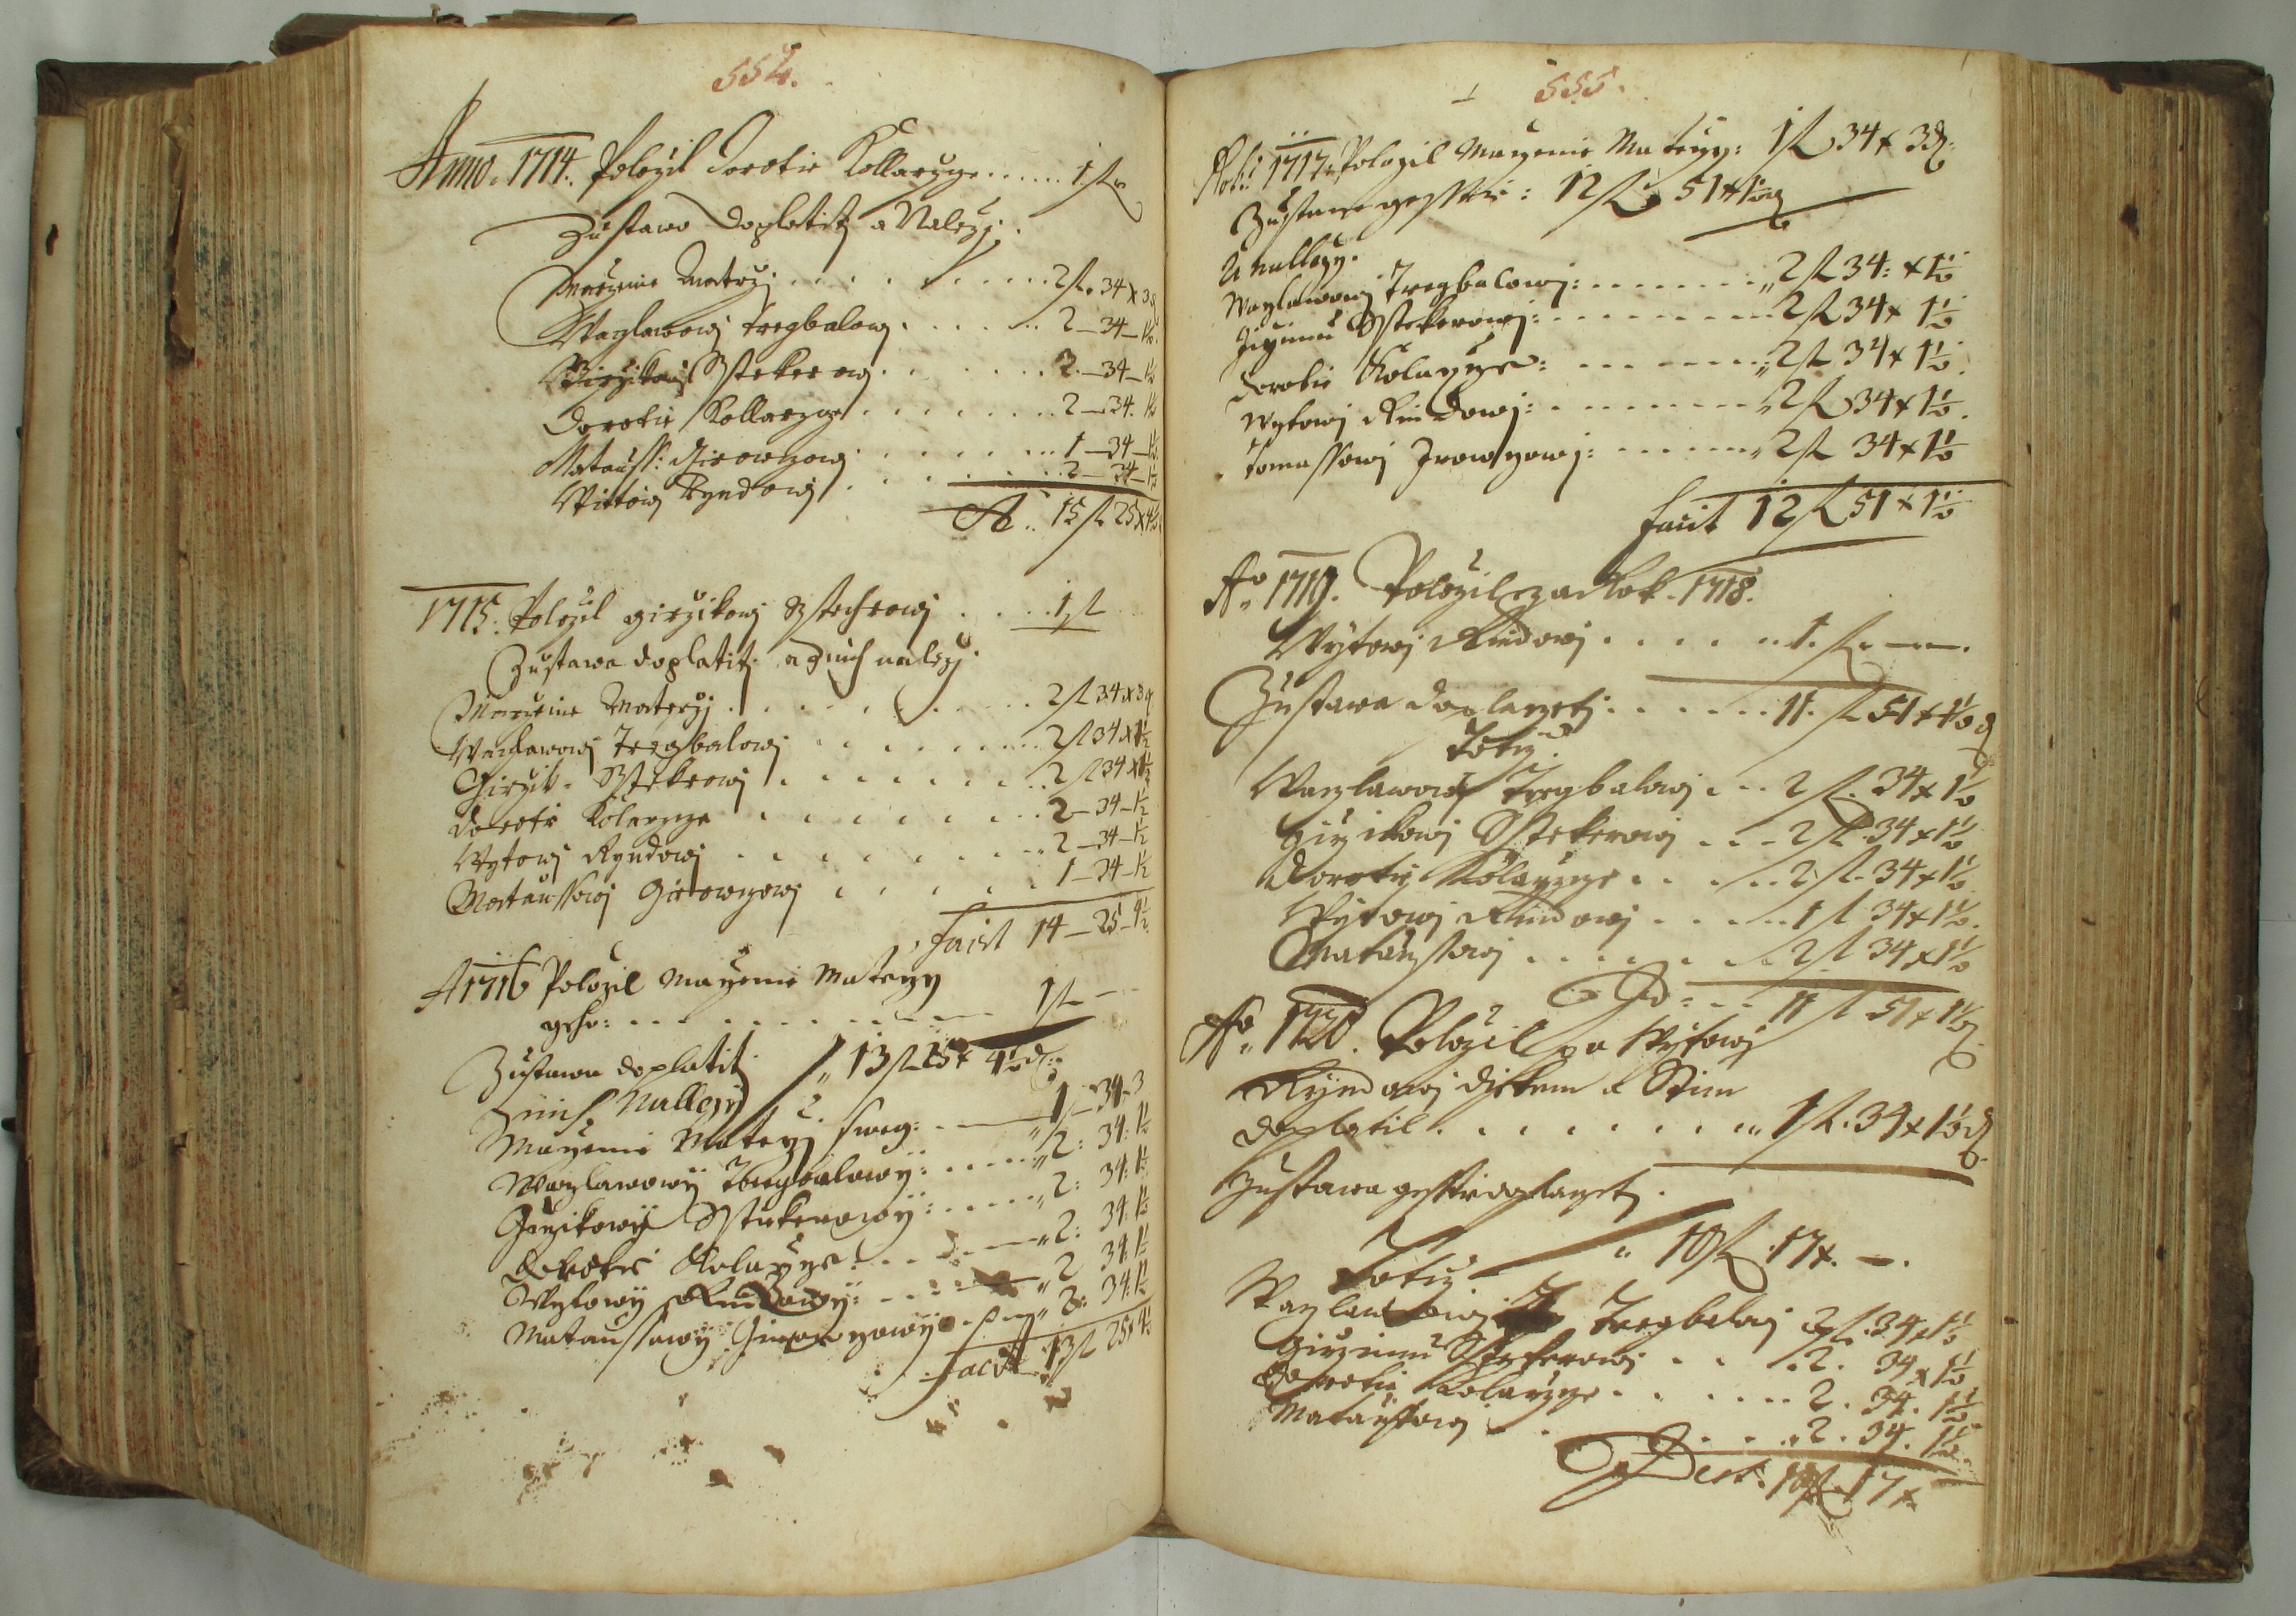 554.
Anno. 1714. Položil Dorotie Kollarzge ...... 1 fl
Zustawa doplatitj a Naležj.
Marzenie Materzj ......... 2 fl. 34 x 3 d
Waczlawowj Tregbalowj ...... 2 — 34 — 1½
Girzikowj Sstekrowj ....... 2 — 34 — 1½
Dorotie Kollarzge ......... 2 — 34. 1½
Matauss: Girowczowj ....... 1 — 34 — 1½
Wittowj Ryndowj ........ 2 — 34 — 1½
15 fl 25 x 4½
1715: Položil Girzikowj Sstechrowj ..... 1 fl
Zustawa doplatitj a z nich naležj
Marzenie Materzj ......... 2 fl 34 x 3 d
Waczlawowj Tregbalowj ........ 2 fl 34 x 1½
Girzik. Sstekrowj ........ 2 fl 34 x 1½
Dorotie Kolarzge ......... 2 — 34 — 1½
Wytowj Ryndowj ........ 2 — 34 — 1½
Mataussowj Girowczowj ...... 1 — 34 — 1½
Facit 14 — 25 — 4½
A 1716 Položil Marzenie Materzy
geho: ......... 1 fl —
Zustawa doplatit " 13 fl 25 x 4½ d:
Z nich Nalležy
Marzenie Materzj sweg: — 1 — 34 — 3
Waczlawowÿ Tregbalowÿ: ..... " 2: 34: 1½
Girzikowÿ Sstekerowÿ: .... " 2: 34: 1½
Dorotie Kolarzge: ... " 2: 34: 1½
Wytowÿ Rindowÿ: ..... " 2 34: 1½
Mataussowÿ Girowczowÿ ... " 2: 34: 1½
Facit 13 fl 25 x 4½
555.
1717. Položil Marzenie Materzy: 1 fl 34 x 3 d:
Zustawa gesstie: 12 fl 51 x 1½ d
A nalležy.
Waczlawowj Tregbalowj: ....... " 2 fl 34: x 1½
Girzimu Sstekerowj: ......... 2 fl 34 x 1½
Dorotie Kolarzge: ....... " 2 fl 34 x 1½
Wytowj Rindowj: ........ " 2 fl 34 x 1½
Tomassowj Irowczowj: ...... " 2 fl 34 x 1½
Facit 12 fl 51 x 1½
Ao 1719. Položil za Rok. 1718.
Wÿtowj Rindowj ...... 1. fl. —
Zustawa doplaczetj ...... 11. fl 51 x 1½ d
Totiž
Waczlawowj Tregbalowj ... 2 fl. 34 x 1½
Girzikowj Sstekerowj ... 2 fl. 34 x 1½
Dorotie Kolarzge ..... 2 fl. 34 x 1½
Wÿtowj Rindowj ..... 1 fl 34 x 1½
Mataussowj ...... 2 fl 34 x 1½
11 fl 51 x 1½ d
Ao 1720. Položil po Wÿtowj
Rÿndowj Dietkem a Stim
doplatil ........ " 1 fl. 34 x 1½ d
Zustawa gesstie doplaczetj.
" 10 fl. 17 x. —.
Totiž
Waczlawowj Tregbalowj 2 fl. 34 x 1½
Girzimu Sstekerowj ... 2. 34 x 1½
Dorotie Kolarzge ..... 2. 34. 1½
Mataussowj ..... 2. 34. 1½
10 fl. 17 x